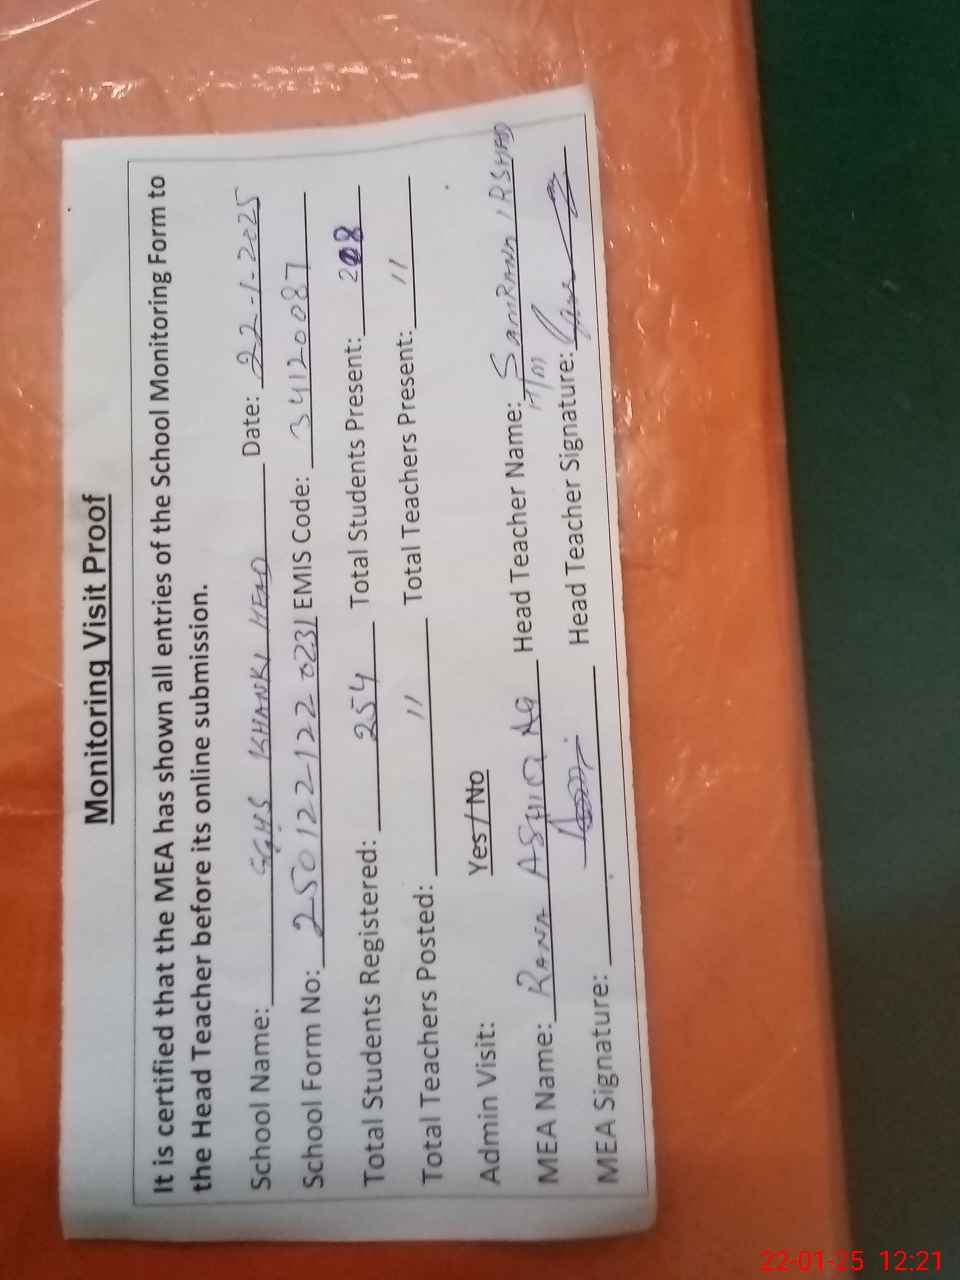 Monitoring Visit Proof
It is certified that the MEA has shown all entries of the School Monitoring Form to
the Head Teacher before its online submission.
School Name: GGHS KHANKI HEAD Date: 22-1-2025
School Form No: 250122122 0231 EMIS Code: 34120087
Total Students Registered: 254 Total Students Present: 208
Total Teachers Posted: 11 Total Teachers Present: 11
Admin Visit: Yes/No
MEA Name: RANA ASHIQ AG Head Teacher Name: SAMRANA IRSHAD
H/M
MEA Signature: Head Teacher Signature:
22-01-25 12:21